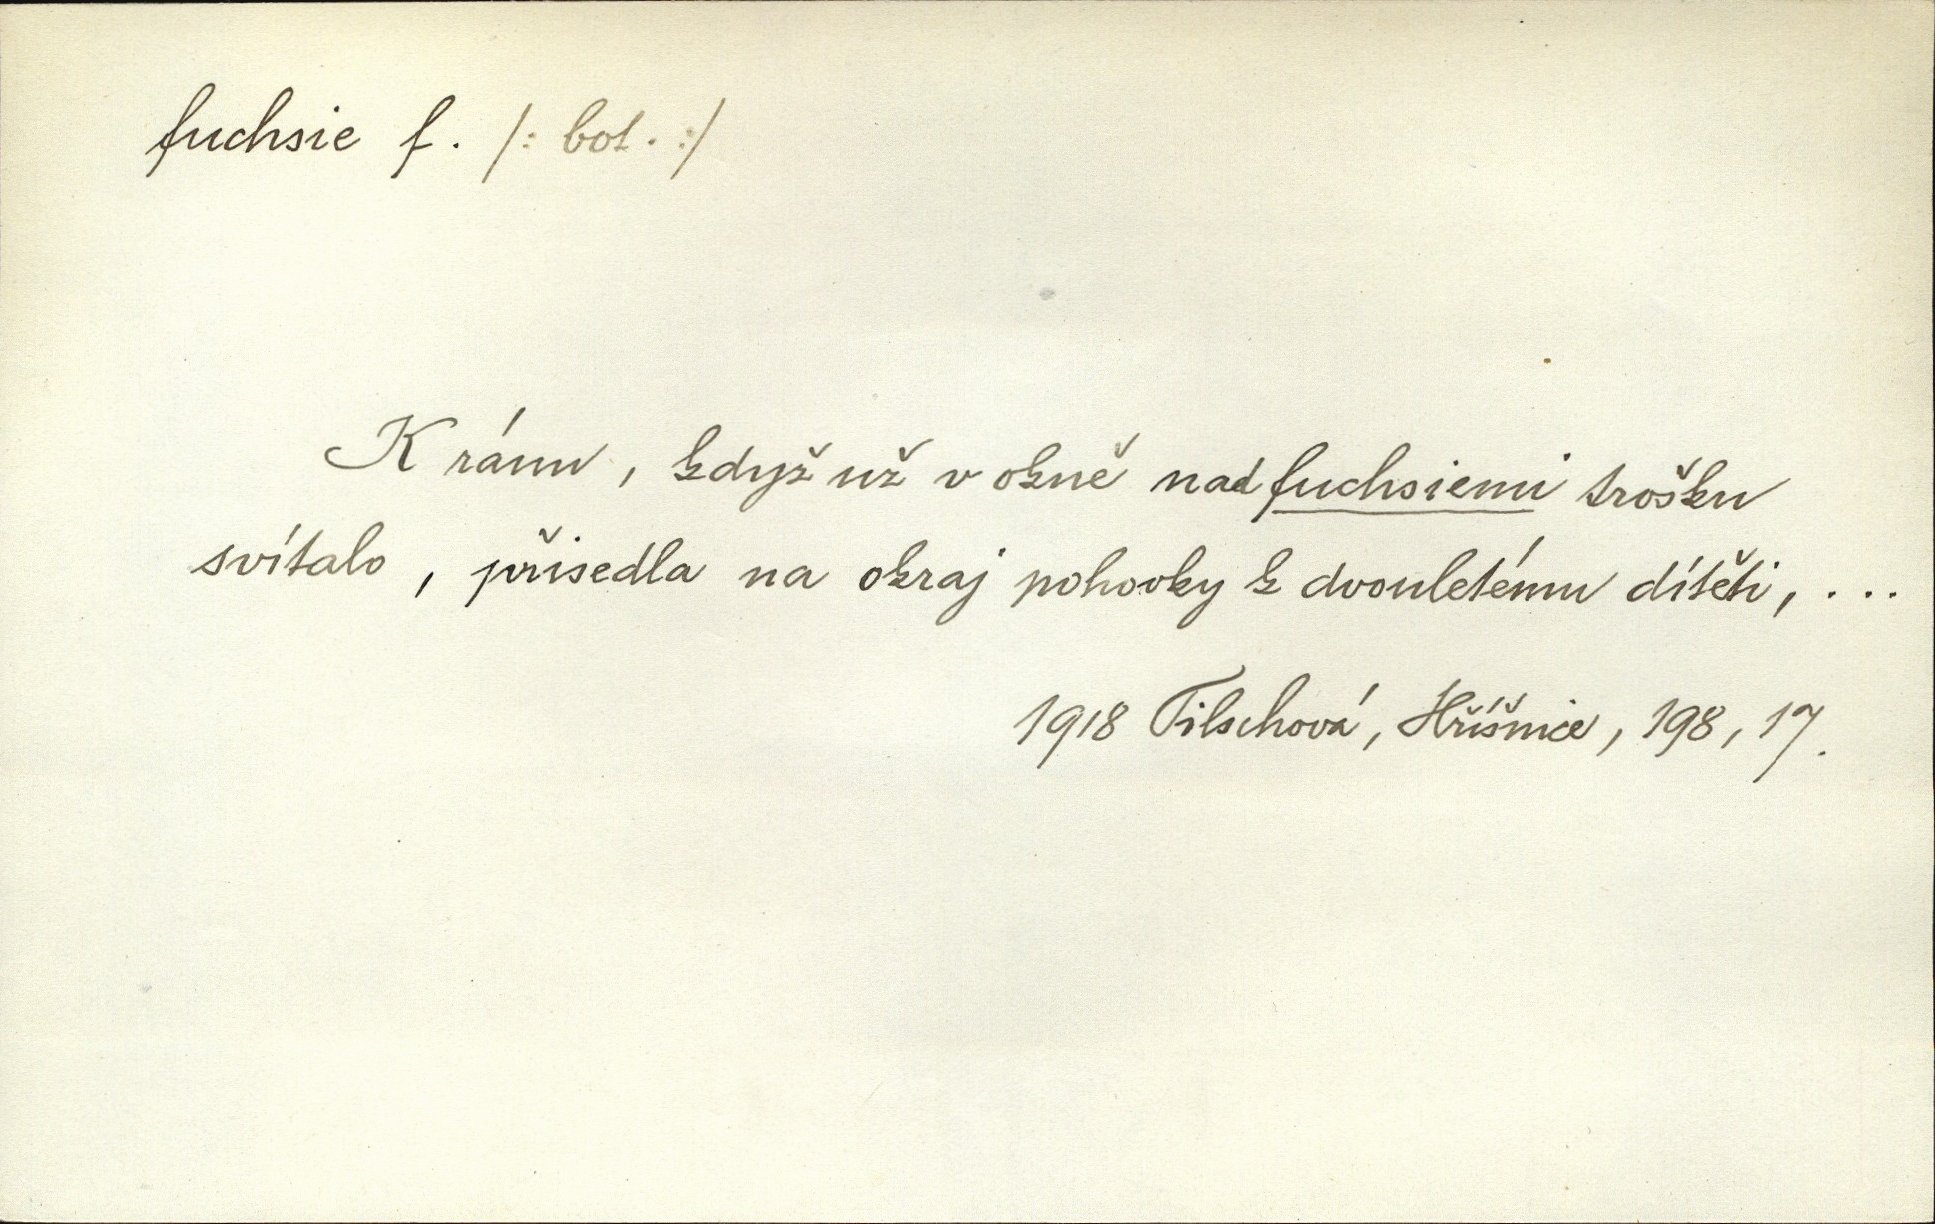 fuchsie f. /: bot. :/
K ránu, když už v okně nad fuchsiemi trošku
svítalo, přisedla na okraj pohovky k dvouletému dítěti, ...
1918 Tilschová, Hříšnice, 198, 17.